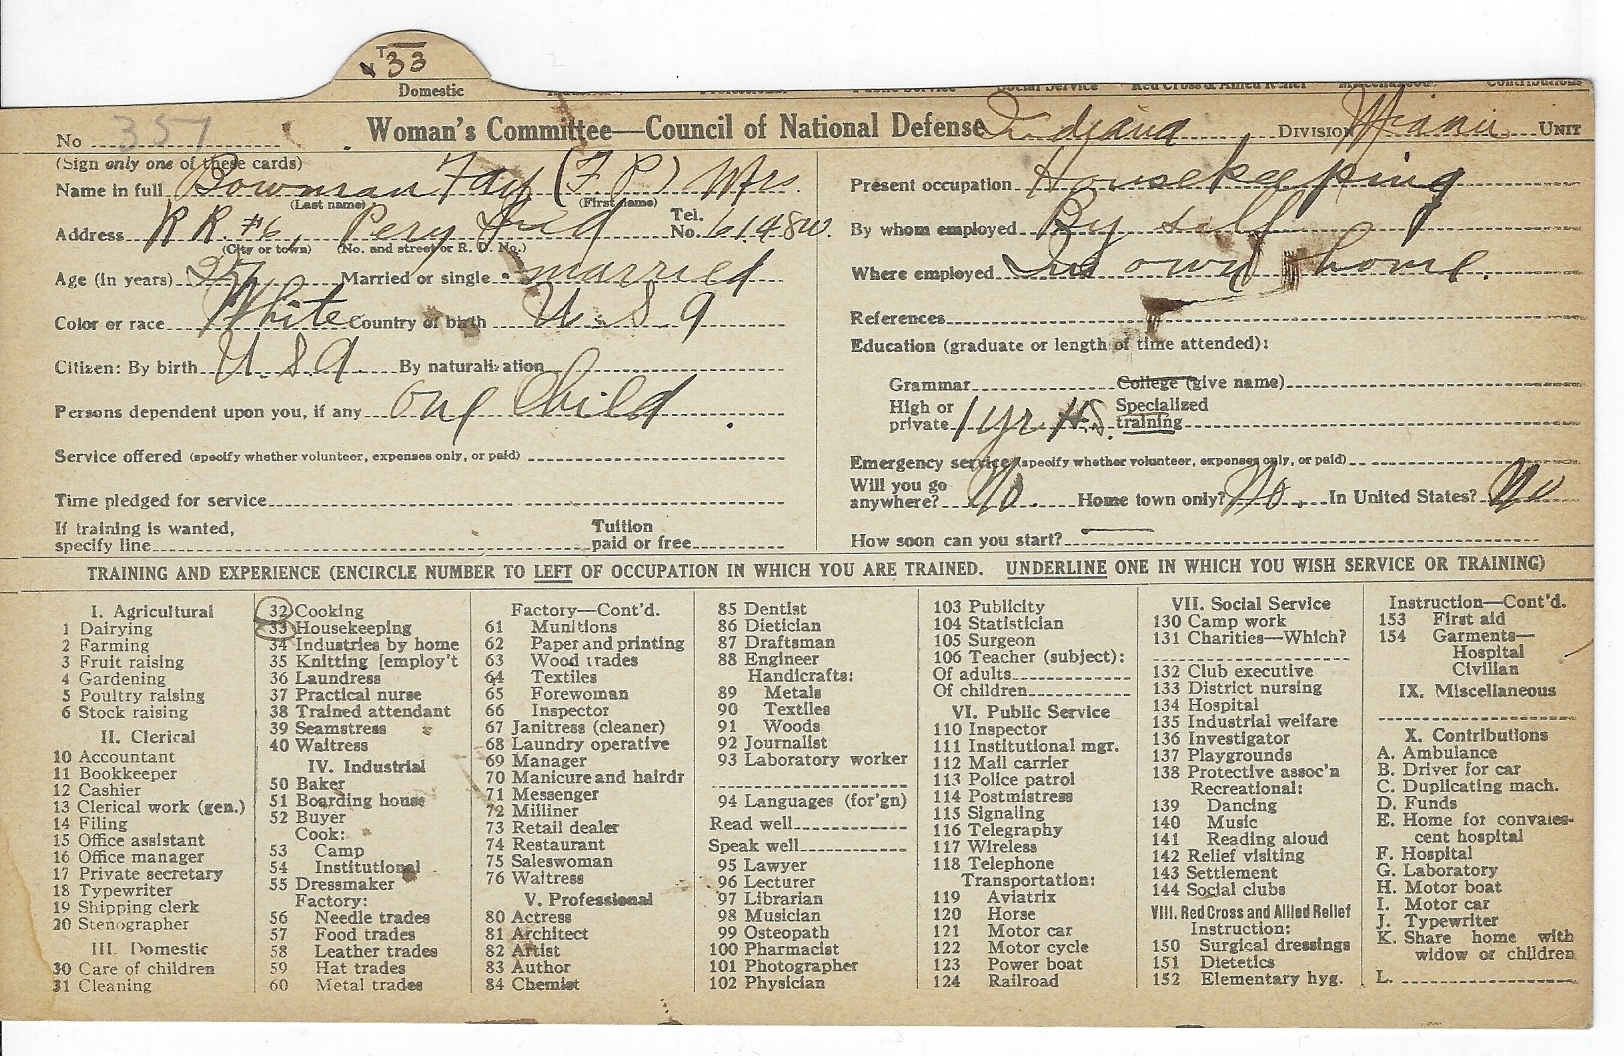 T
33
Domestic
No 357
Woman's Committee—Council of National Defense Indiana DIVISION Miami UNIT
(Sign only one of these cards)
Name in full Bowman Fay (F P) Mrs.
(Last name) (First name)
Address R R. #6, Peru Ind Tel. No. 6148W.
(City or town) (No. and street or R. D. No.)
Age (in years) Married or single married
Color or race White Country of birth U S a
Citizen: By birth U. S. a. By naturalization
Persons dependent upon you, if any One Child.
Service offered (specify whether volunteer, expenses only, or paid)
Time pledged for service
If training is wanted, specify line Tuition paid or free
Present occupation Housekeeping
By whom employed By self
Where employed In own home.
References
Education (graduate or length of time attended):
Grammar College (give name)
High or private 1 yr. H.S. Specialized training
Emergency service (specify whether volunteer, expenses only, or paid)
Will you go anywhere? No. Home town only? No. In United States? No
How soon can you start?
TRAINING AND EXPERIENCE (ENCIRCLE NUMBER TO LEFT OF OCCUPATION IN WHICH YOU ARE TRAINED. UNDERLINE ONE IN WHICH YOU WISH SERVICE OR TRAINING)
I. Agricultural
1 Dairying
2 Farming
3 Fruit raising
4 Gardening
5 Poultry raising
6 Stock raising
II. Clerical
10 Accountant
11 Bookkeeper
12 Cashier
13 Clerical work (gen.)
14 Filing
15 Office assistant
16 Office manager
17 Private secretary
18 Typewriter
19 Shipping clerk
20 Stenographer
III. Domestic
30 Care of children
31 Cleaning
32 Cooking
33 Housekeeping
34 Industries by home
35 Knitting [employ't
36 Laundress
37 Practical nurse
38 Trained attendant
39 Seamstress
40 Waitress
IV. Industrial
50 Baker
51 Boarding house
52 Buyer
Cook:
53 Camp
54 Institutional
55 Dressmaker
Factory:
56 Needle trades
57 Food trades
58 Leather trades
59 Hat trades
60 Metal trades
Factory—Cont'd.
61 Munitions
62 Paper and printing
63 Wood trades
64 Textiles
65 Forewoman
66 Inspector
67 Janitress (cleaner)
68 Laundry operative
69 Manager
70 Manicure and hairdr
71 Messenger
72 Milliner
73 Retail dealer
74 Restaurant
75 Saleswoman
76 Waitress
V. Professional
80 Actress
81 Architect
82 Artist
83 Author
84 Chemist
85 Dentist
86 Dietician
87 Draftsman
88 Engineer
Handicrafts:
89 Metals
90 Textiles
91 Woods
92 Journalist
93 Laboratory worker
94 Languages (for'gn)
Read well
Speak well
95 Lawyer
96 Lecturer
97 Librarian
98 Musician
99 Osteopath
100 Pharmacist
101 Photographer
102 Physician
103 Publicity
104 Statistician
105 Surgeon
106 Teacher (subject):
Of adults
Of children
VI. Public Service
110 Inspector
111 Institutional mgr.
112 Mail carrier
113 Police patrol
114 Postmistress
115 Signaling
116 Telegraphy
117 Wireless
118 Telephone
Transportation:
119 Aviatrix
120 Horse
121 Motor car
122 Motor cycle
123 Power boat
124 Railroad
VII. Social Service
130 Camp work
131 Charities—Which?
132 Club executive
133 District nursing
134 Hospital
135 Industrial welfare
136 Investigator
137 Playgrounds
138 Protective assoc'n
Recreational:
139 Dancing
140 Music
141 Reading aloud
142 Relief visiting
143 Settlement
144 Social clubs
VIII. Red Cross and Allied Relief
Instruction:
150 Surgical dressings
151 Dietetics
152 Elementary hyg.
Instruction—Cont'd.
153 First aid
154 Garments—
Hospital
Civilian
IX. Miscellaneous
X. Contributions
A. Ambulance
B. Driver for car
C. Duplicating mach.
D. Funds
E. Home for convales-
cent hospital
F. Hospital
G. Laboratory
H. Motor boat
I. Motor car
J. Typewriter
K. Share home with
widow or children
L.